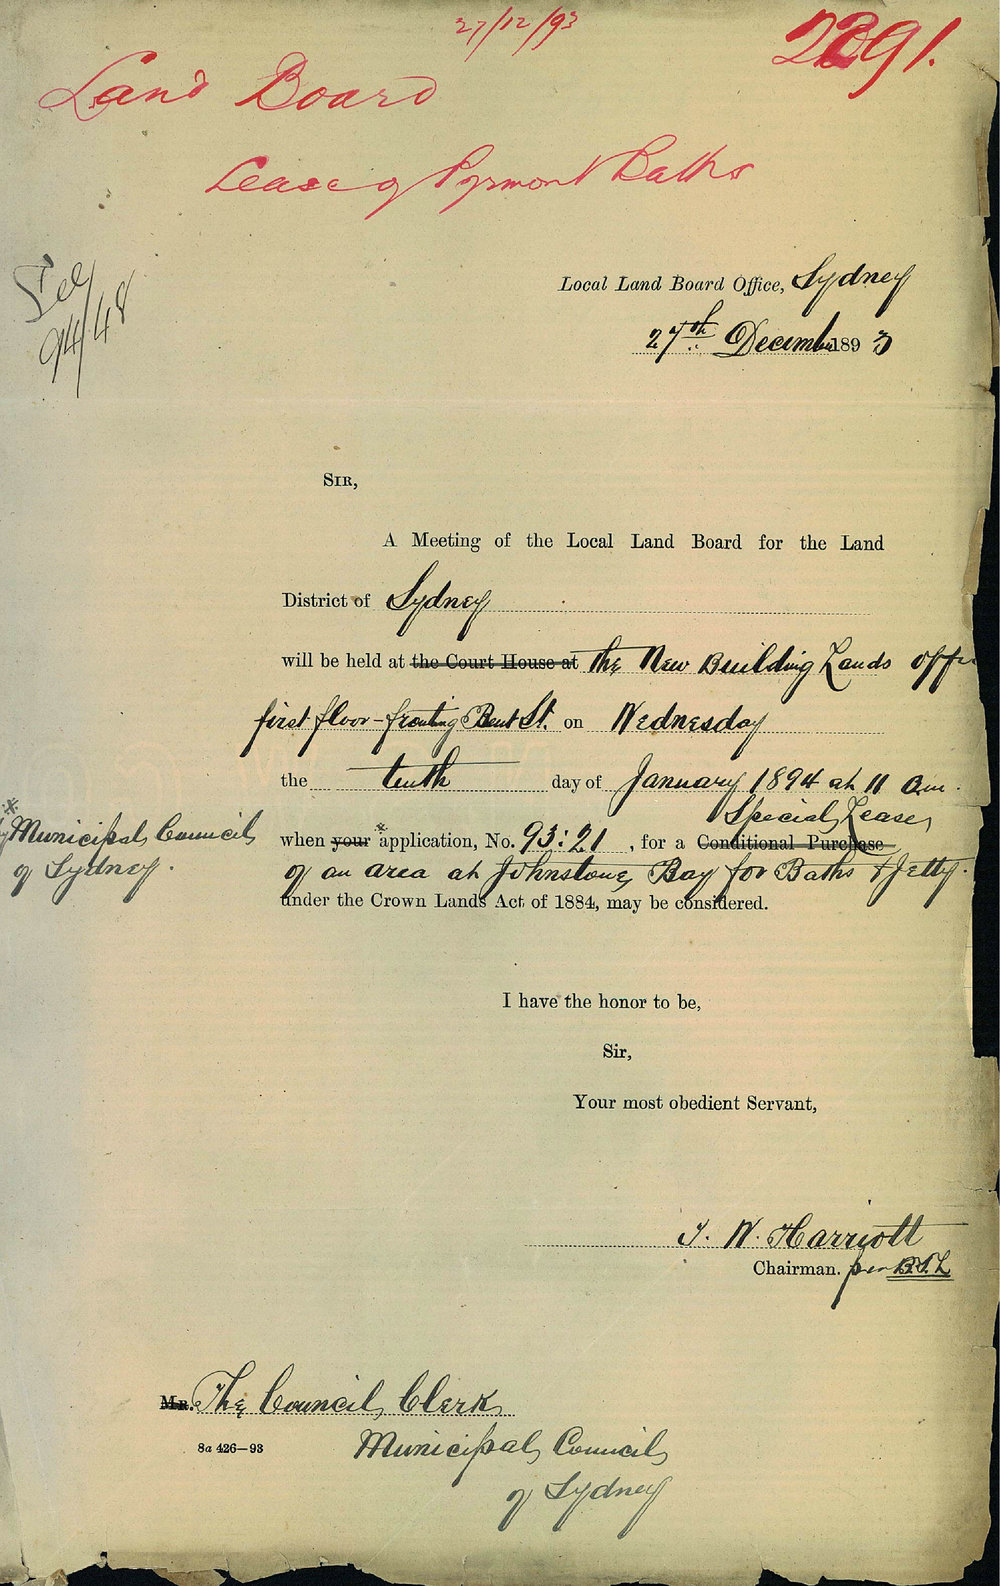 27/12/93
2291.
Land Board
Lease of Pyrmont Baths
94/48
Local Land Board Office, Sydney
27th Decembr 1893
SIR,
A Meeting of the Local Land Board for the Land
District of Sydney
will be held at the Court House at the New Building Lands Office
first floor - fronting Bent St. on Wednesday
the tenth day of January 1894 at 11 a.m.
Special Lease
* by Municipal Council
of Sydney.
when your * application, No. 93:21, for a Conditional Purchase
of an area at Johnstones Bay for Baths & Jetty.
under the Crown Lands Act of 1884, may be considered.
I have the honor to be,
Sir,
Your most obedient Servant,
J. W. Harriott
Chairman. per B.T.L
MR. The Council Clerk
8a 426—93
Municipal Council
of Sydney